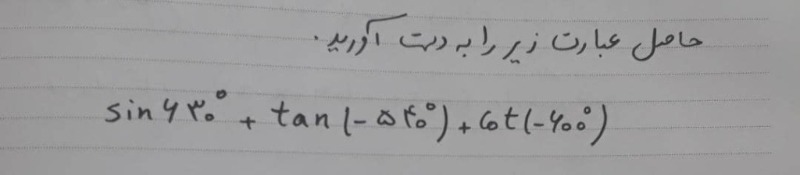 حاصل عبارت زیر را به دست آورید.
sin ۶۳۰° + tan (-۵۴۰°) + Cot (-۶۰۰°)